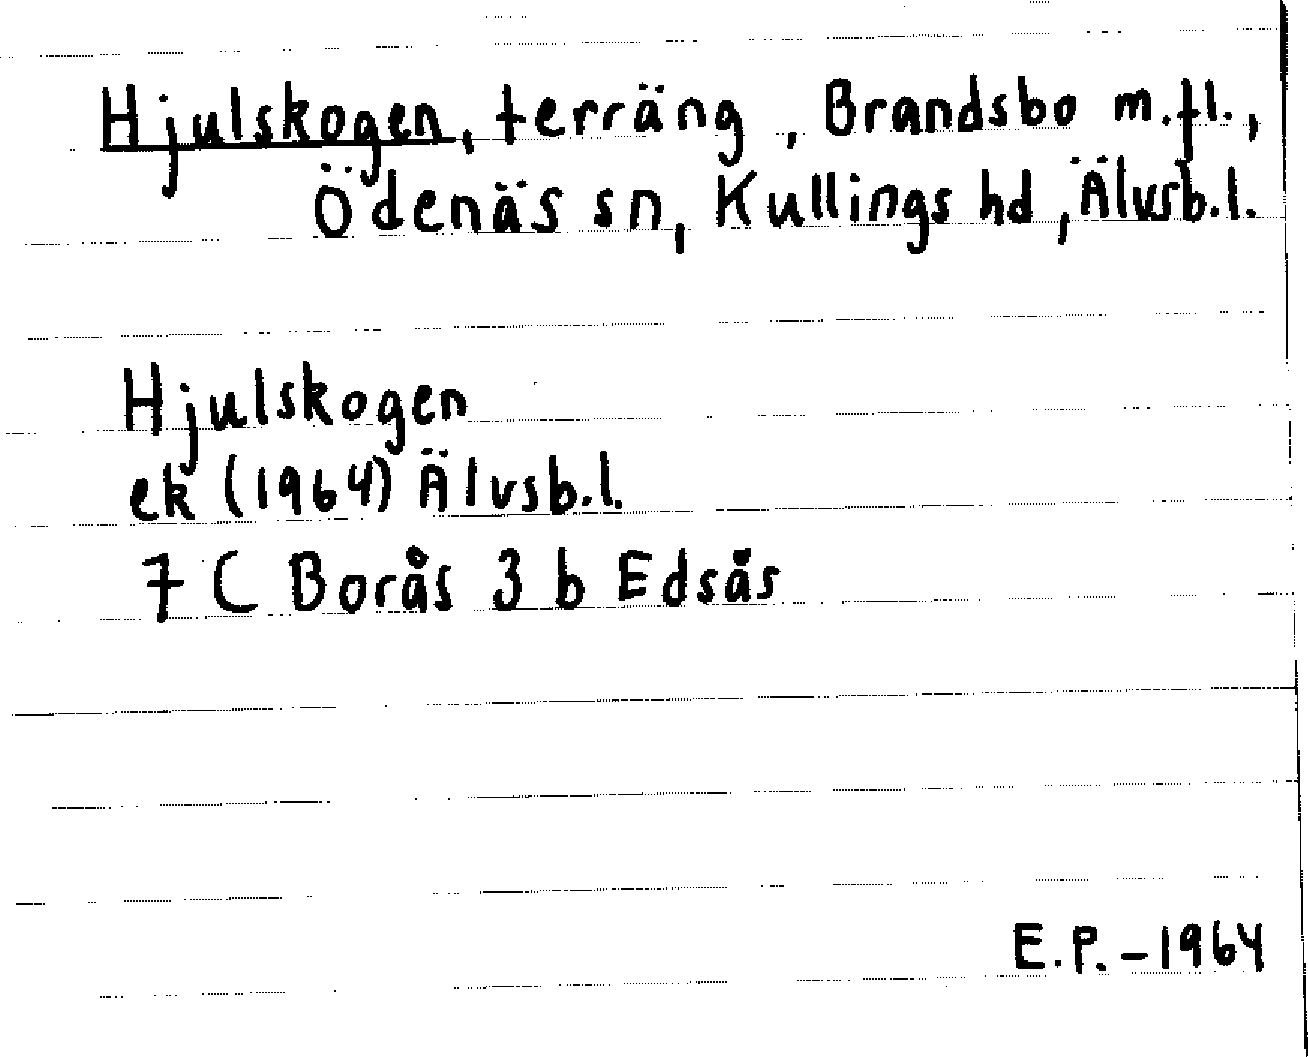 Hjulskogen, terräng, Brandsbo m.fl.,
Ödenäs sn, Kullings hd, Älvsb.l.
Hjulskogen
ek (1964) Älvsb.l.
7 C Borås 3 b Edsås
E.P. - 1964